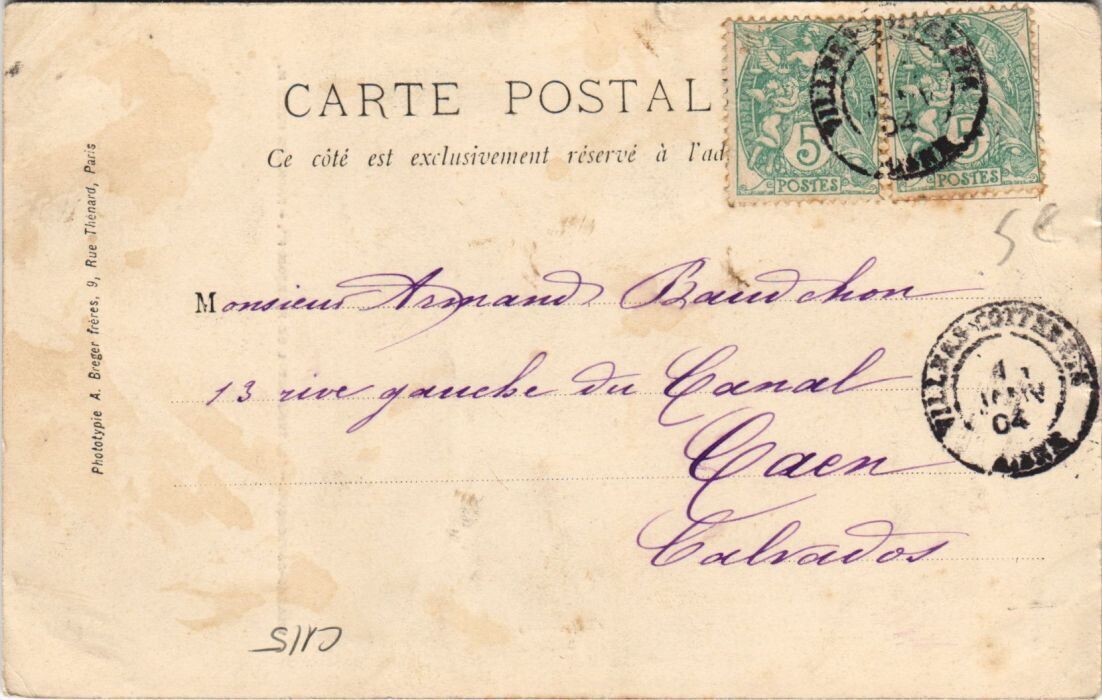 CARTE POSTAL
Ce côté est exclusivement réservé à l'ad
5 5
POSTES POSTES
04
5 e.
Monsieur Armand Baudchon
13 rive gauche du Canal
Caen
Calvados
VILLERS-COTTERETS
JUIN
04
AISNE
Phototypie A. Breger frères, 9, Rue Thénard, Paris